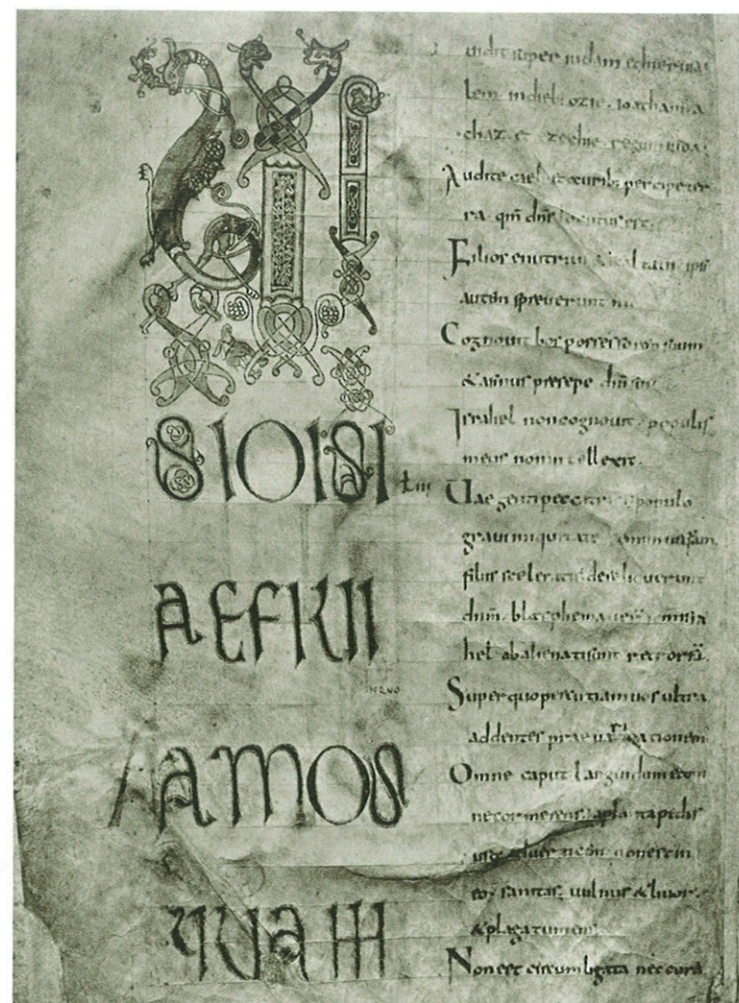 UI
SIOISI
AEFILII
AMOS
QUAM
uidit super iudam &hierusa
lem
chaz et ezechie regum iuda
Audite caeli et auribus percipe ter
ra qm dns locutus est.
Filios enutriui ipsi
autem spreuerunt me
Cognouit bos possessorem suum
& asinus presepe dni sui
Israhel noncognouit populus
meus nonintellexit.
Uae genti peccatrici populo
graui iniquitate
filiis sceleratis dereliquerunt
dnm blasphemauerunt
hel abalienatisunt retrorsu
Super quo percutiam uos ultra
addentes praeuaricationem
Omne caput languidum &om
necor merens aplanta pedis
usq; aduerticem nonest in
eo sanitas uulnus &liuor
&plaga tumens
Nonest circumligata nec cura